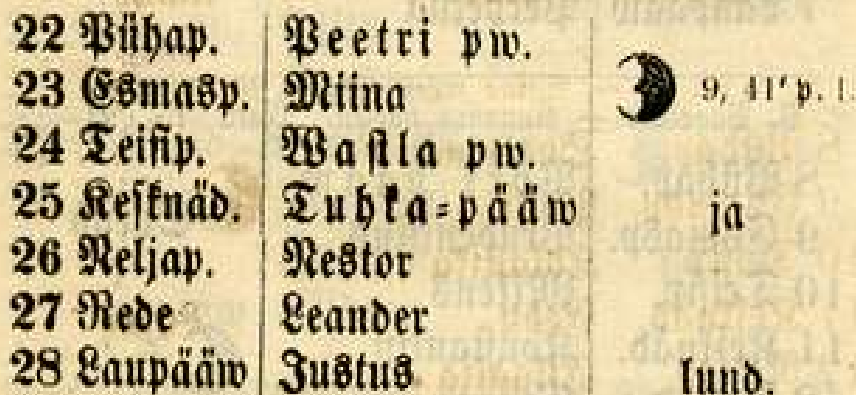 22 Pühap. Peetri pw.
23 Esmasp. Miina 9, 41' p. l.
24 Teisip. Wastla pw.
25 Kesknäd. Tuhka-pääw ja
26 Neljap. Nestor
27 Rede Leander
28 Laupääw Justus lund.